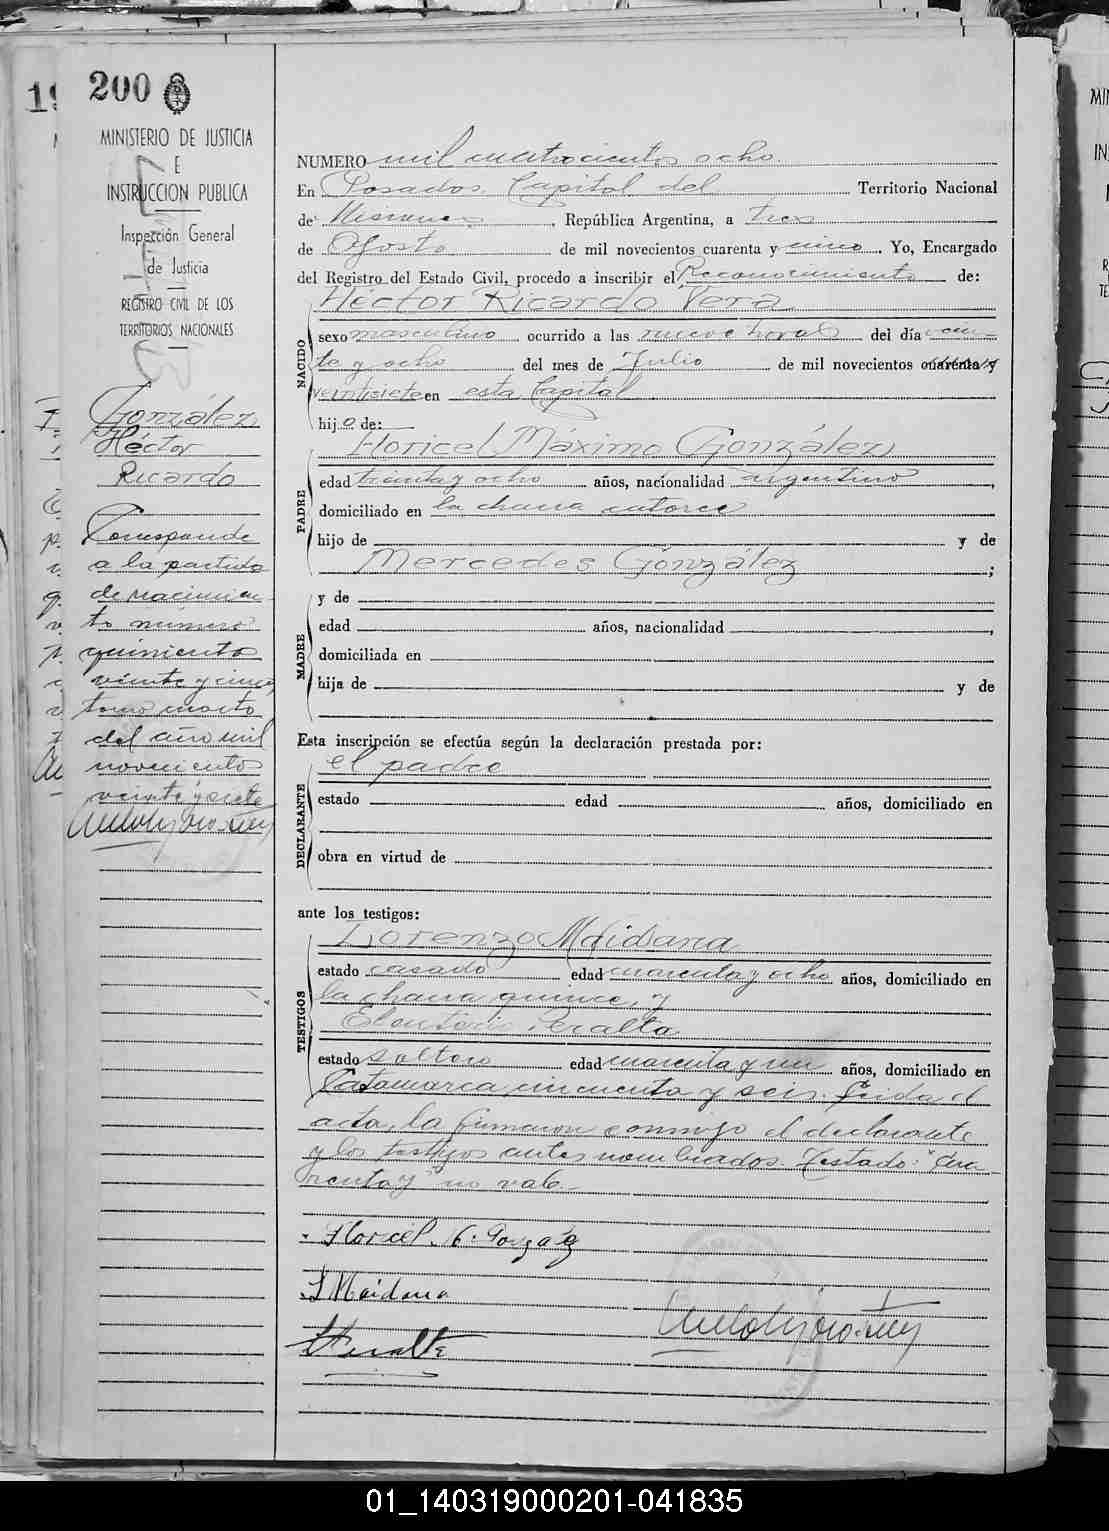 200
MINISTERIO DE JUSTICIA
E
INSTRUCCION PUBLICA
Inspección General
de Justicia
REGISTRO CIVIL DE LOS
TERRITORIOS NACIONALES
González
Héctor
Ricardo
Corresponde
a la partida
de nacimien-
to número
quiniento
veinte y cinco
tomo cuarto
del año mil
novecientos
veinte y siete
NUMERO mil cuatrocientos ocho
En Posadas, Capital del Territorio Nacional
de Misiones, República Argentina, a tres
de Agosto de mil novecientos cuarenta y cinco. Yo, Encargado
del Registro del Estado Civil, procedo a inscribir el Reconocimiento de:
Héctor Ricardo Vera
NACIDO
sexo masculino ocurrido a las nueve horas del día vein-
te y ocho del mes de Julio de mil novecientos cuarenta y
veintisiete en esta Capital
hijo de:
Floricel Máximo González
PADRE
edad treinta y ocho años, nacionalidad argentino,
domiciliado en la chacra catorce
hijo de y de
Mercedes González;
MADRE
y de
edad años, nacionalidad,
domiciliada en
hija de y de
Esta inscripción se efectúa según la declaración prestada por:
el padre
DECLARANTE
estado edad años, domiciliado en
obra en virtud de
ante los testigos:
Lorenzo Maidana
TESTIGOS
estado casado edad cuarenta y ocho años, domiciliado en
la chacra quince, y
Eleuterio Peralta
estado soltero edad cuarenta y un años, domiciliado en
Catamarca cincuenta y seis. Leida el
acta, la firmaron conmigo el declarante
y los testigos antes nombrados. Testado: "Cua-
renta y" no vale.-
Floricel. M. Gonzalez
L Maidana
Peralta
01_140319000201-041835